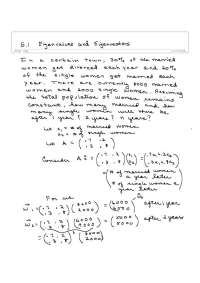 6.1 Eigenvalues and Eigenvectors
In a certain town, 30% of the married
women get divorced each year and 20%
of the single women get married each
year. There are currently 8000 married
women and 2000 single women. Assuming
the total population of women remains
constant, how many married and how
many single women will there be
after 1 year? 2 years? n years?
Let x₁ = # of married women
x₂ = # of single women
Let A = ( .7 .2
.3 .8 )
Consider A x = ( .7 .2
.3 .8 ) ( x₁
x₂ ) = ( .7x₁ + .2x₂
.3x₁ + .8x₂ )
= ( # of married women a year later
# of single women a year later )
For us
w₁ = ( .7 .2
.3 .8 ) ( 8000
2000 ) = ( 6000
4000 ) after 1 year
w₂ = ( .7 .2
.3 .8 ) ( 6000
4000 ) = ( 5000
5000 ) after 2 years
= ( .7 .2
.3 .8 )² ( 8000
2000 )